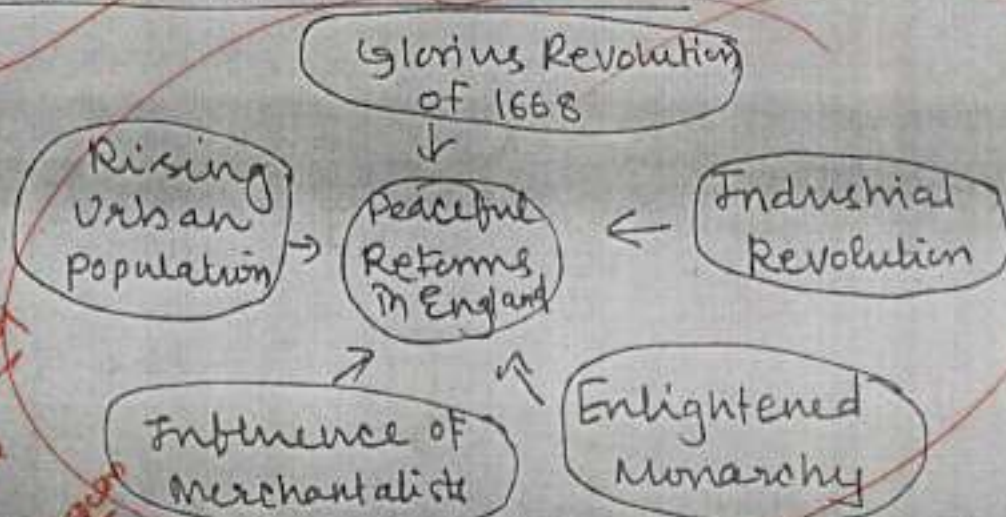 Glorius Revolution
of 1668
Rising
Urban
Population
Peaceful
Reforms
in England
Industrial
Revolution
Influence of
Merchantalists
Enlightened
Monarchy